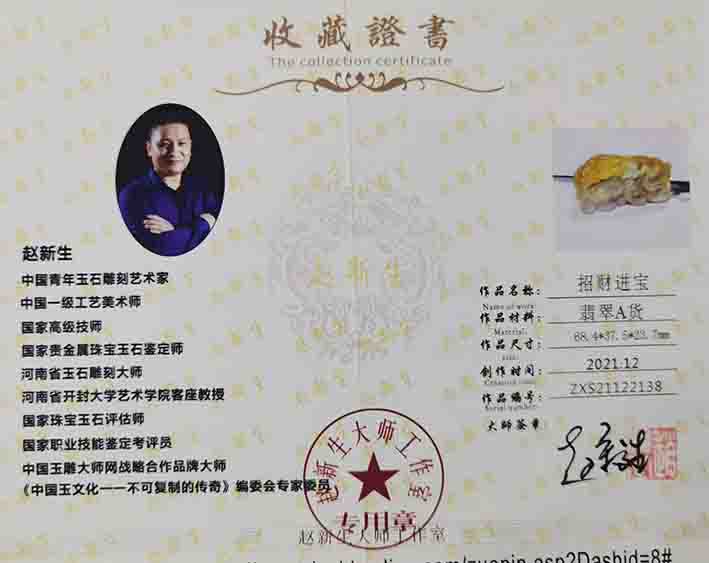 收藏證書
The collection certificate
赵新生
中国青年玉石雕刻艺术家
中国一级工艺美术师
国家高级技师
国家贵金属珠宝玉石鉴定师
河南省玉石雕刻大师
河南省开封大学艺术学院客座教授
国家珠宝玉石评估师
国家职业技能鉴定考评员
中国玉雕大师网战略合作品牌大师
《中国玉文化——不可复制的传奇》编委会专家委员
赵新生
作品名称: 招财进宝
Name of work:
作品材料: 翡翠A货
Material:
作品尺寸: 68.4*37.5*23.7mm
size:
创作时间: 2021.12
作品编号: ZXS21122138
Serial number:
大师签章:
赵新生大师工作室
专用章
赵新生大师工作室